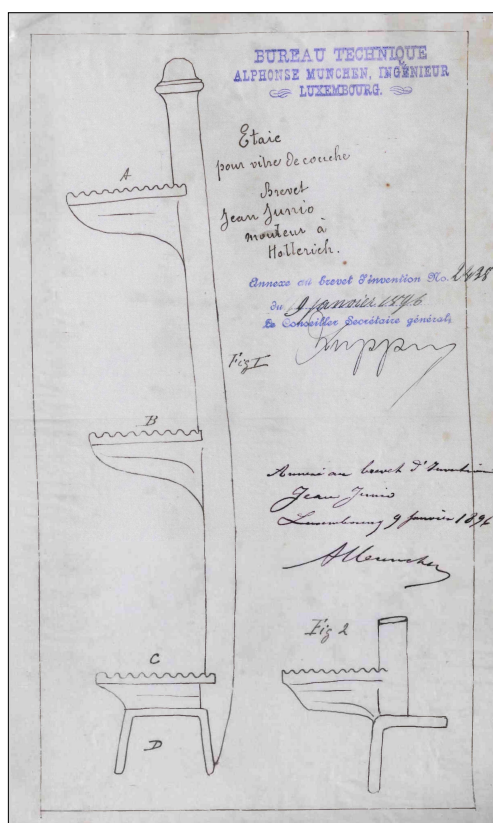 BUREAU TECHNIQUE
ALPHONSE MUNCHEN, INGÉNIEUR
LUXEMBOURG.
Etaie
pour vitre de couche
Brevet
Jean Junio
mouleur à
Hollerich.
Annexe au brevet d'invention No. 2428
du 9 janvier 1896
Le Conseiller Secrétaire général,
A
Fig I
B
Annexé au brevet d'Invention
Jean Junio
Luxembourg 9 janvier 1896
AMunchen
Fig 2
C
D